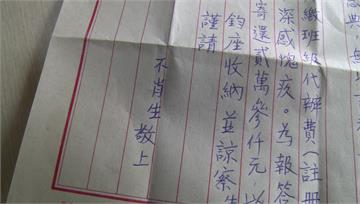 繳班級代辦費(註冊
深感愧疚。為報答
寄還貳萬參仟元 以
鈞座收納並諒察
謹請
不肖生敬上